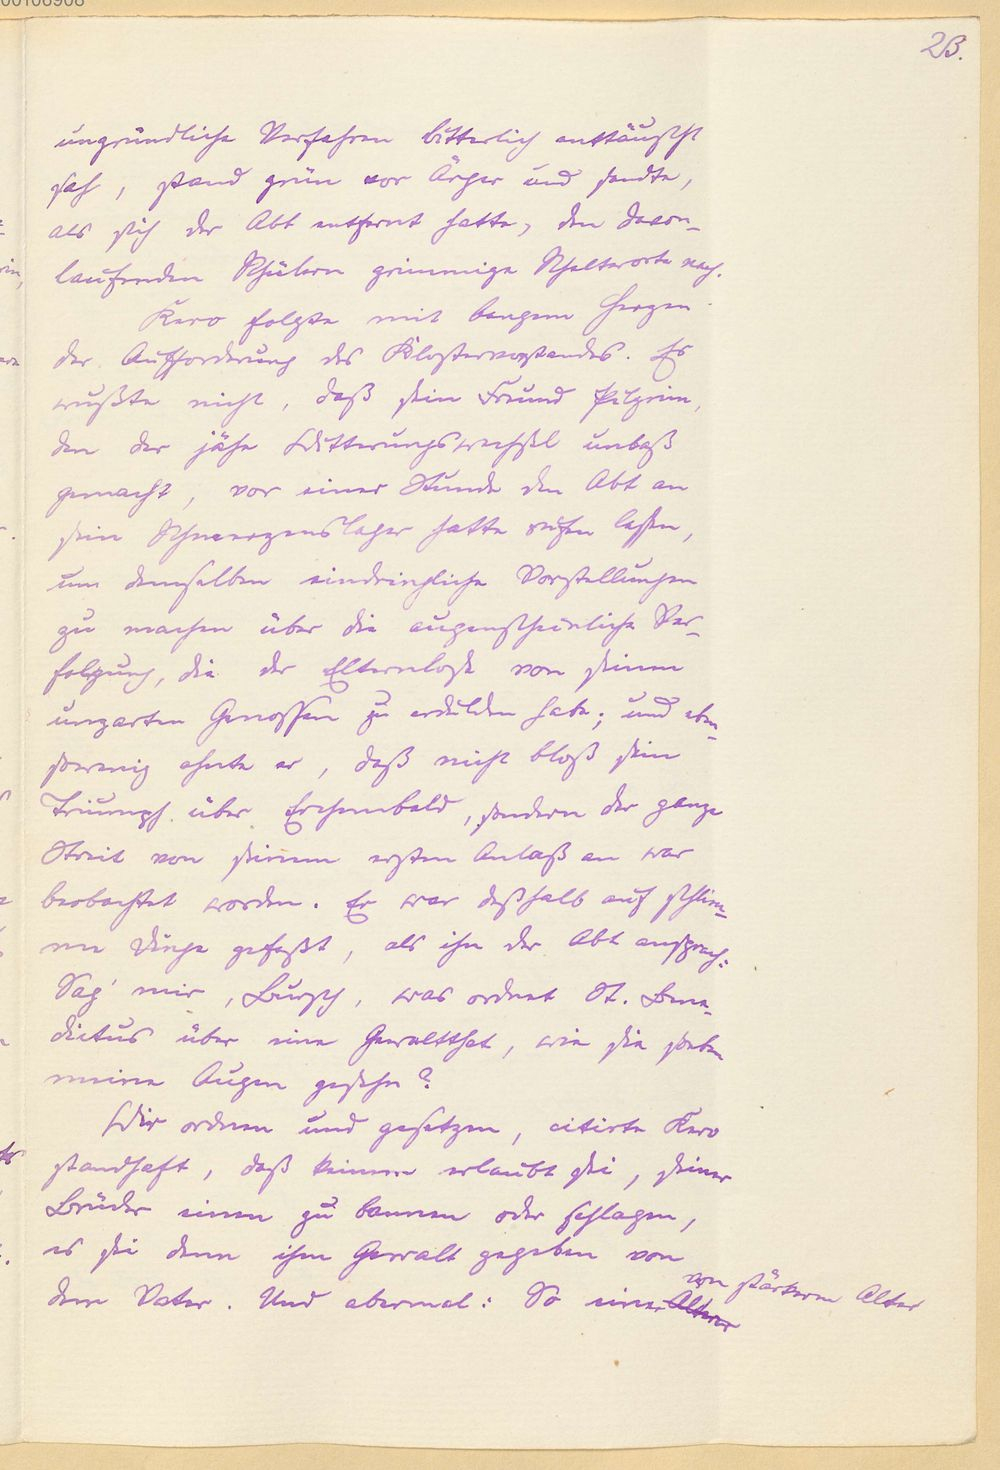 00106908
23.
ungründliche Verfahren bitterlich enttäuscht
sah, stand grün vor Ärger und sandte,
als sich der Abt entfernt hatte, den davon-
laufenden Schülern grimmige Scheltworte nach.
Kero folgte mit bangem Herzen
der Aufforderung des Klostervorstandes. Er
wußte nicht, daß sein Freund Pilgrim,
den der jähe Witterungswechsel unbaß
gemacht, vor einer Stunde den Abt an
sein Schmerzenslager hatte rufen lassen,
um demselben eindringliche Vorstellungen
zu machen über die augenscheinliche Ver-
folgung, die der Elternlose von seinen
unzarten Genossen zu erdulden habe; und eben-
sowenig ahnte er, daß nicht bloß sein
Triumph über Erchenbald, sondern der ganze
Streit von seinem ersten Anlaß an war
beobachtet worden. Er war deßhalb auf schlim-
me Dinge gefaßt, als ihn der Abt ansprach:
Sag' mir, Bursch, was ordnet St. Bene-
dictus über eine Gewaltthat, wie sie soeben
meine Augen gesehn?
Wir ordnen und gesetzen, citirte Kero
standhaft, daß keinem erlaubt sei, seiner
Brüder einen zu bannen oder schlagen,
es sei denn ihm Gewalt gegeben von
dem Vater. Und abermal: So einer von stärkerm Alter